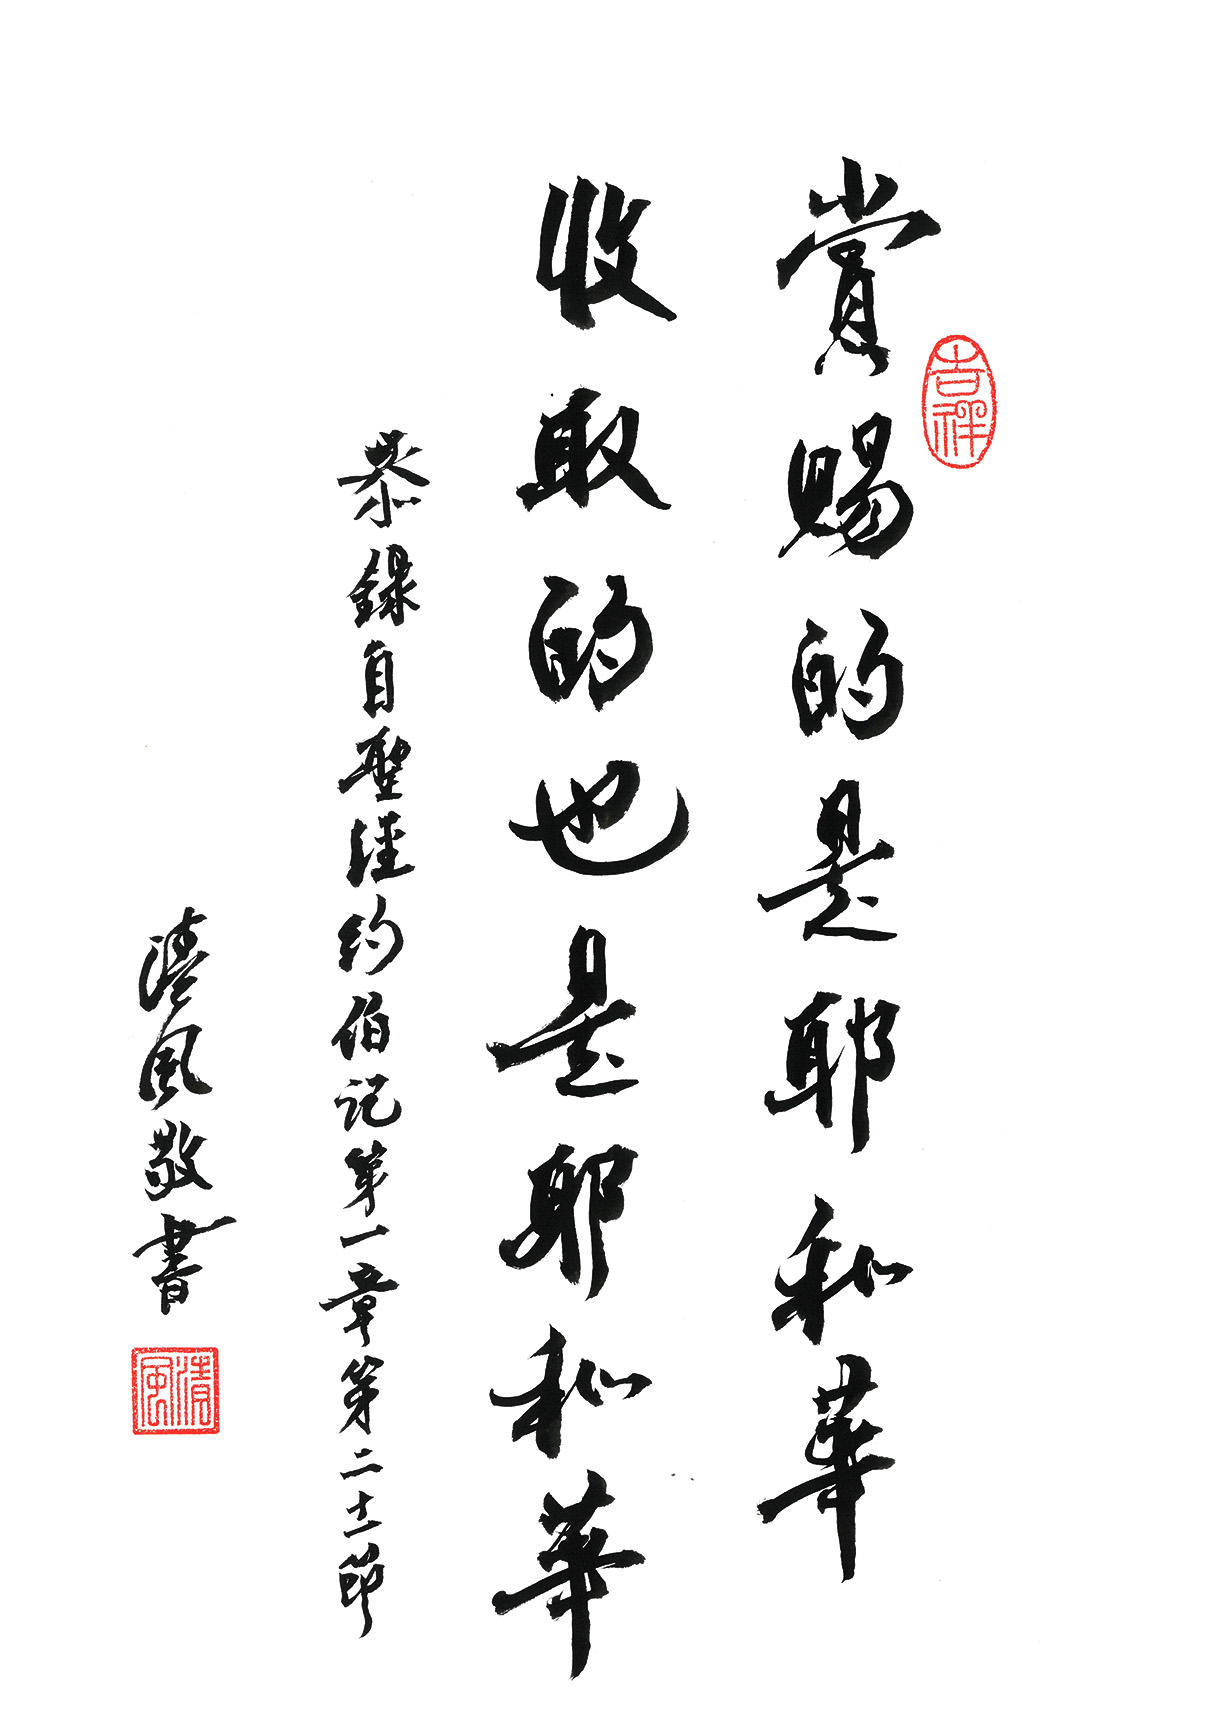 賞賜的是耶和華
收取的也是耶和華
恭錄自聖經約伯記第一章第二十一節
清風敬書
吉祥
清風